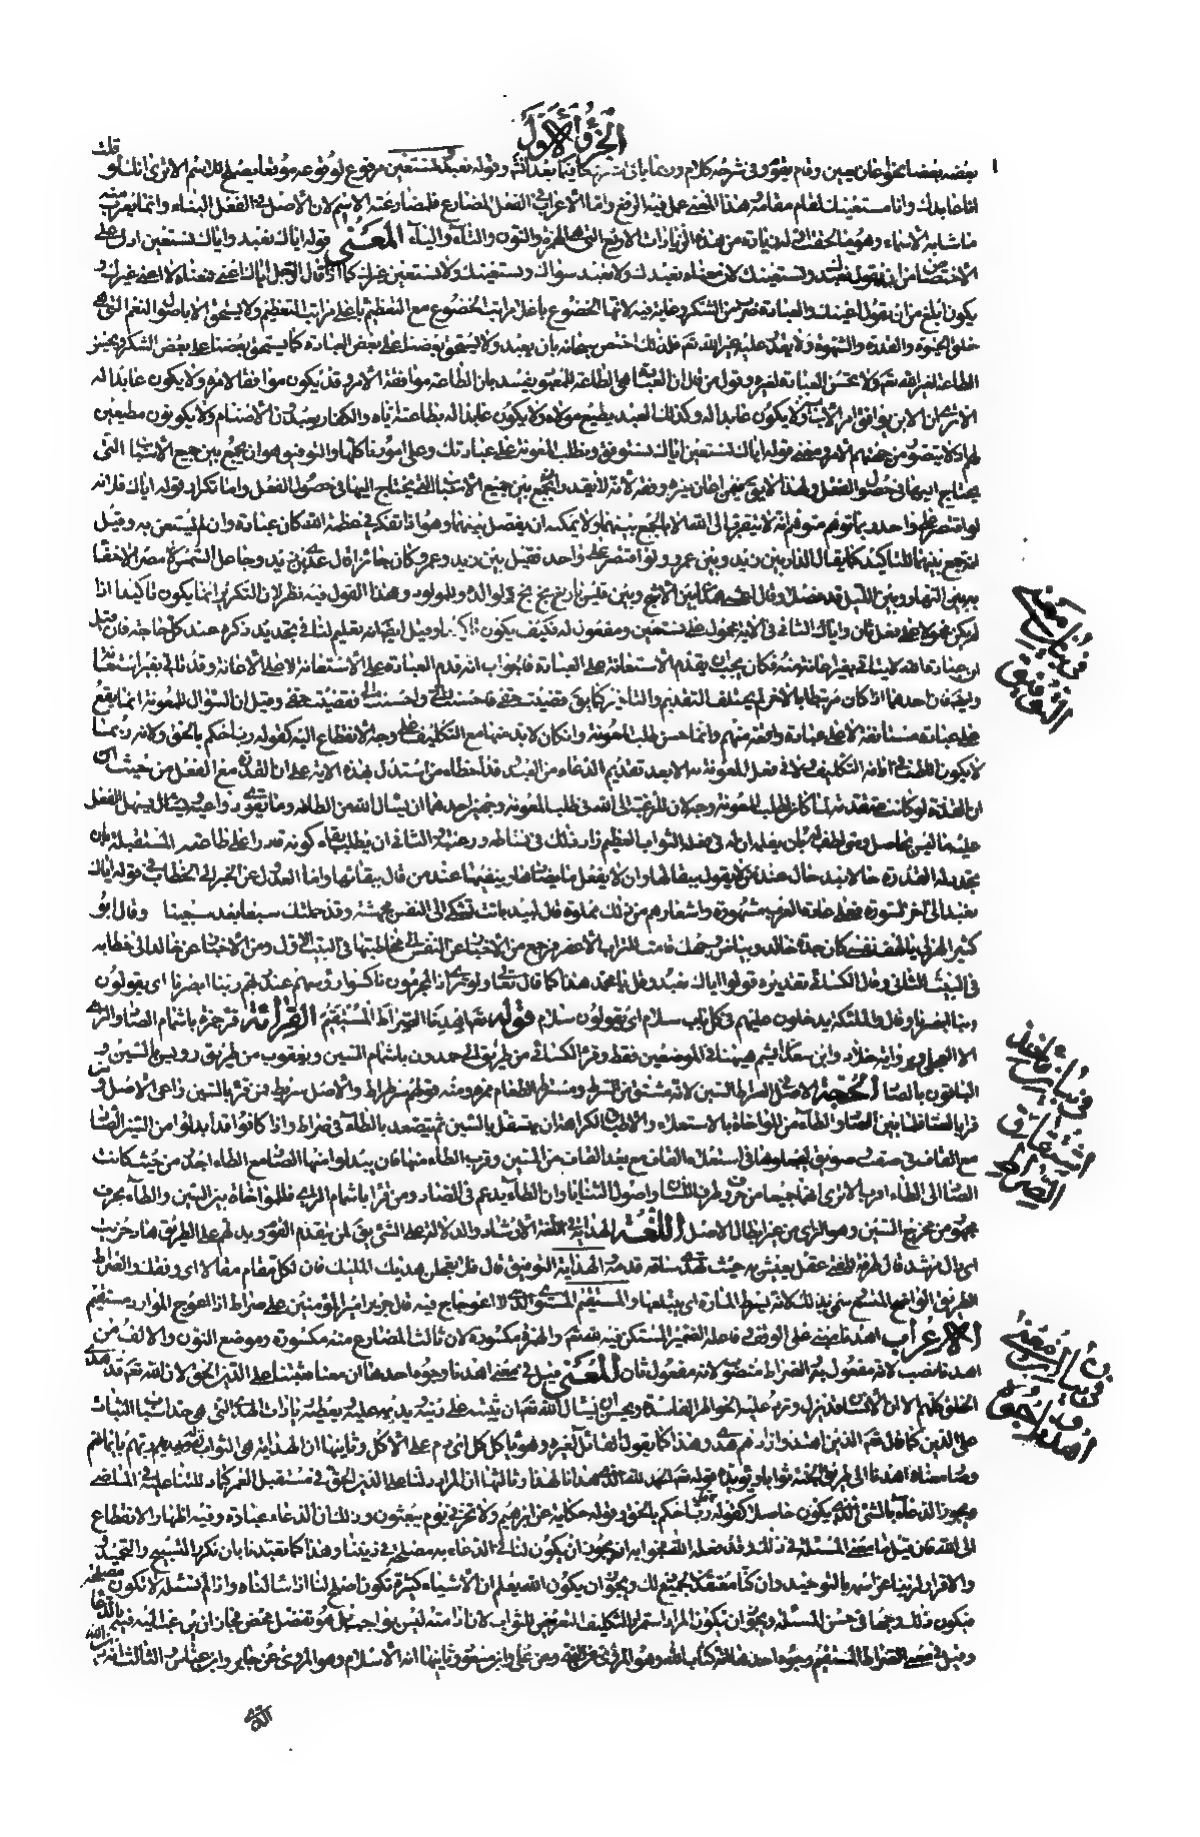 الجزء الأول
بعضه بعضا نحو وقام يقوم وفي شرحه كلام وقوله نعبد ونستعين مرفوع لوقوعه موقعا يصلح للاسم الا ترى انك لو قلت
انا عابدك وانا مستعينك لقام مقامه وهذا المعنى عمل فيه الرفع واما الاعراب في الفعل المضارع فلمضارعته الاسم لان الاصل في الفعل البناء وانما يعرب منه
ما شابه الاسماء وهو ما لحقت اوله زيادة من هذه الزيادات الاربع التي هي الهمزة والنون والتاء والياء المعنى قوله اياك نعبد واياك نستعين ادل على
الاختصاص من ان نقول نعبدك ونستعينك لان معناه نعبدك ولا نعبد سواك ونستعينك ولا نستعين غيرك كما اذا قال الرجل اياك اعني فمعناه لا اعني غيرك و
يكون ابلغ من ان يقول اعنيك والعبادة ضرب من الشكر وغاية فيه لانها الخضوع باعلى مراتب الخضوع مع التعظيم باعلى مراتب التعظيم ولا يستحق الا باصول النعم التي هي
خلق الحيوة والقدرة والشهوة ولا يقدر عليه غير الله تعم فلذلك اختص سبحانه بان يعبد ولا يستحق بعضنا على بعض العبادة كما يستحق بعضنا على بعض الشكر ويحسن
الطاعة لغير الله تعم ولا يحسن العبادة لغيره وقول من قال ان العبادة هي الطاعة للمعبود يفسد بان الطاعة موافقة الامر وقد يكون موافقا لامره ولا يكون عابدا له
الا ترى ان الابن يوافق امر الاب ولا يكون عابدا له وكذلك العبد يطيع مولاه ولا يكون عابدا له بطاعته اياه والكفار يعبدون الاصنام ولا يكونون مطيعين
لهم اذ لا يتصور من جهتهم الامر ومعنى قوله اياك نستعين اياك نستوفق ونطلب المعونة على عبادتك وعلى امورنا كلها والتوفيق هو ان يجمع بين جميع الاسباب التي
يحتاج اليها في حصول الفعل ولهذا لا يقال فيمن اعان غيره وفقه لانه لا يقدر ان يجمع بين جميع الاسباب التي يحتاج اليها في حصول الفعل واما تكرار قوله اياك فلانه
لو اقتصر على واحد ربما توهم متوهم انه لا يتقرب الى الله الا بالجمع بينهما ولا يمكنه ان يفصل بينهما وهو اذا تفكر في عظمة الله كان عبادة وان لم يستعن به وقيل
انه جمع بينهما للتاكيد كما يقال الدار بين زيد وبين عمرو ولو اقتصر على واحد فقيل بين زيد وعمرو كان جائزا قال عدي بن زيد وجاعل الشمس مصرا لا خفاء
به بين النهار وبين الليل قد فصلا وقال اعشى همدان بين الاشج وبين قيس باذخ بخ بخ لوالده وللمولود وهذا القول فيه نظر لان التكرير انما يكون تاكيدا اذا
لم يكن محمولا على فعل ثان واياك الثاني في الاية محمول على نستعين ومفعول له فكيف يكون تاكيدا وقيل ايضا انه تعليم لنا في تجديد ذكره عند كل حاجة فان قيل
ان عبادة الله لا تتاتى بغير اعانة منه فكان يجب ان يقدم الاستعانة على العبادة فالجواب انه قدم العبادة على الاستعانة لا على الاعانة وقد تاتي بغير استعانة
وايضا فان احدهما اذا كان مرتبطا بالاخر لم يختلف التقديم والتاخير كما يقال قضيت حقي فاحسنت الي واحسنت الي فقضيت حقي وقيل ان السؤال للمعونة انما يقع
على عبادة مستانفة لا على عبادة واقعة منهم وانما حسن طلب المعونة وان كان لا بد منها مع التكليف على وجه الانقطاع اليه كقوله رب احكم بالحق ولانه ربما
لا يكون اللطف في ادامة التكليف ولا في فعل المعونة به الا بعد تقديم الدعاء من العبد وقد اخطا من استدل بهذه الاية على ان القدرة مع الفعل من حيث ان
ان القدرة لو كانت متقدمة لما كان لطلب المعونة وجه لان للرغبة الى الله في طلب المعونة وجهين احدهما ان يسال الله من الطافه وما يقوي دواعيه ويسهل الفعل
عليه ما ليس بحاصل ومتى لطف له بان يعلمه ان له في فعله الثواب العظيم زاد ذلك في نشاطه ورغبته والثاني ان يطلب بقاء كونه قادرا على طاعته المستقبلة بان
تجدد له القدرة حالا بعد حال عند من لا يقول ببقائها وان لا يفعل ما يضادها وينفيها عند من قال ببقائها واما العدول عن الخبر الى الخطاب في قوله اياك
نعبد الى اخر السورة فعلى عادة العرب مشهورة واشعارهم من ذلك مملوة قال لبيد باتت تشكى الي النفس مجهشة وقد حملتك سبعا بعد سبعينا وقال ابو
كثير الهذلي يا لهف نفسي كان جدة خالد وبياض وجهك للتراب الاعفر فرجع من الاخبار عن النفس الى مخاطبتها في البيت الاول ومن الاخبار عن خالد الى خطابه
في البيت الثاني وقال الكسائي تقديره قولوا اياك نعبد او قل يا محمد هذا كما قال تعالى ولو ترى اذ المجرمون ناكسوا رؤسهم عند ربهم ربنا ابصرنا اي يقولون
ربنا ابصرنا وقال والملئكة يدخلون عليهم من كل باب سلام اي يقولون سلام قوله تعم اهدنا الصراط المستقيم القراءة قرء حمزة باشمام الصاد الزاي
الا العجلي ورواية خلاد وابن سعدان يشم ههنا في الموضعين فقط وقرء الكسائي من طريق ابي حمدون باشمام السين ويعقوب من طريق رويس بالسين و
الباقون بالصاد الحجة الاصل في الصراط السين لانه مشتق من السرط ومسترط الطعام ممره ومنه قولهم سرطراط والاصل سرط فمن قرا بالسين راعى الاصل ومن
قرا بالصاد فلما بين الصاد والطاء من المؤاخاة بالاستعلاء والاطباق ولكراهة ان يتسفل بالسين ثم يتصعد بالطاء في صراط واذا كانوا قد ابدلوا من السين الصاد
مع القاف في صقب وصويق ليصعدوها في استعلاء القاف مع بعد القاف من السين وقرب الطاء منها فان يبدلوا منها الصاد مع الطاء اجدر من حيث كانت
الصاد الى الطاء اقرب الا ترى انهما جميعا من حروف طرف اللسان واصول الثنايا وان الطاء يدغم في الصاد ومن قرا باشمام الزاي فللمؤاخاة بين السين والطاء بحرف
مجهور من مخرج السين وهو الزاي من غير ابطال الاصل اللغة الهداية في اللغة الارشاد والدلالة على الشي يقال لمن يتقدم القوم ويدلهم على الطريق هاد خريت
اي دال مرشد قال طرفة للفتى عقل يعيش به حيث تهدي ساقه قدمه والهداية التوفيق قال فلا تعجلن هداك المليك فان لكل مقام مقالا اي وفقك والصراط
الطريق الواضح المتسع سمي بذلك لانه يسرط المارة اي يبتلعها والمستقيم المستوي الذي لا اعوجاج فيه قال جرير امير المؤمنين على صراط اذا اعوج الموارد مستقيم
الاعراب اهدنا مبني على الوقف وفاعله الضمير المستكن فيه لله تعم والهمزة مكسورة لان ثالث المضارع منه مكسورة وموضع النون والالف من
اهدنا نصب لانه مفعول به والصراط منصوب لانه مفعول ثان المعنى قيل في معنى اهدنا وجوه احدها ان معناه ثبتنا على الدين الحق لان الله تعم قد هدى
الخلق كلهم الا ان الانسان قد يزل وترد عليه الخواطر الفاسدة فيحسن ان يسال الله تعم ان يثبته على دينه ويديمه عليه ويعطيه زيادات الهدى التي هي احد اسباب الثبات
على الدين كما قال الله تعم والذين اهتدوا زادهم هدى وهذا كما يقول القائل لغيره وهو ياكل كل اي دم على الاكل وثانيها ان الهداية هي الثواب لقوله يهديهم ربهم بايمانهم
فصار معناه اهدنا الى طريق الجنة ثوابا لنا ويؤيده قوله الحمد لله الذي هدانا لهذا وثالثها ان المراد دلنا على الدين الحق في مستقبل العمر كما دللتنا عليه في الماضي
ويجوز الدعاء بالشي الذي يكون حاصلا كقوله تعم قال رب احكم بالحق وقوله حكاية عن ابراهيم ولا تخزني يوم يبعثون وذلك ان الدعاء عبادة وفيه اظهار الانقطاع
الى الله فان قيل ما معنى المسئلة في ذلك وقد فعله الله فجوابه انه يجوز ان يكون لنا في الدعاء به مصلحة في ديننا وهذا كما تعبدنا بان نكرر التسبيح والتحميد و
والاقرار لربنا عز اسمه بالتوحيد وان كنا معتقدين لجميع ذلك ويجوز ان يكون الله يعلم ان الاشياء كثيرة تكون اصلح لنا اذا سالناه واذا لم نسئله لا تكون مصلحة
فيكون ذلك وجها في حسن المسئلة ويجوز ان يكون المراد استمرار التكليف والتعريض للثواب لان ادامته ليس بواجب بل هو تفضل محض فجاز ان يرغب اليه فيه بالدعاء
وقيل في معنى الصراط المستقيم وجوه احدها انه كتاب الله وهو المروي عن النبي وعن علي وابن مسعود وثانيها انه الاسلام وهو المروي عن جابر وابن عباس والثالث انه دين الله
الذي
في معنى التوفيق
في بيان اشتقاق الصراط
في بيان معنى اهدنا وجوه